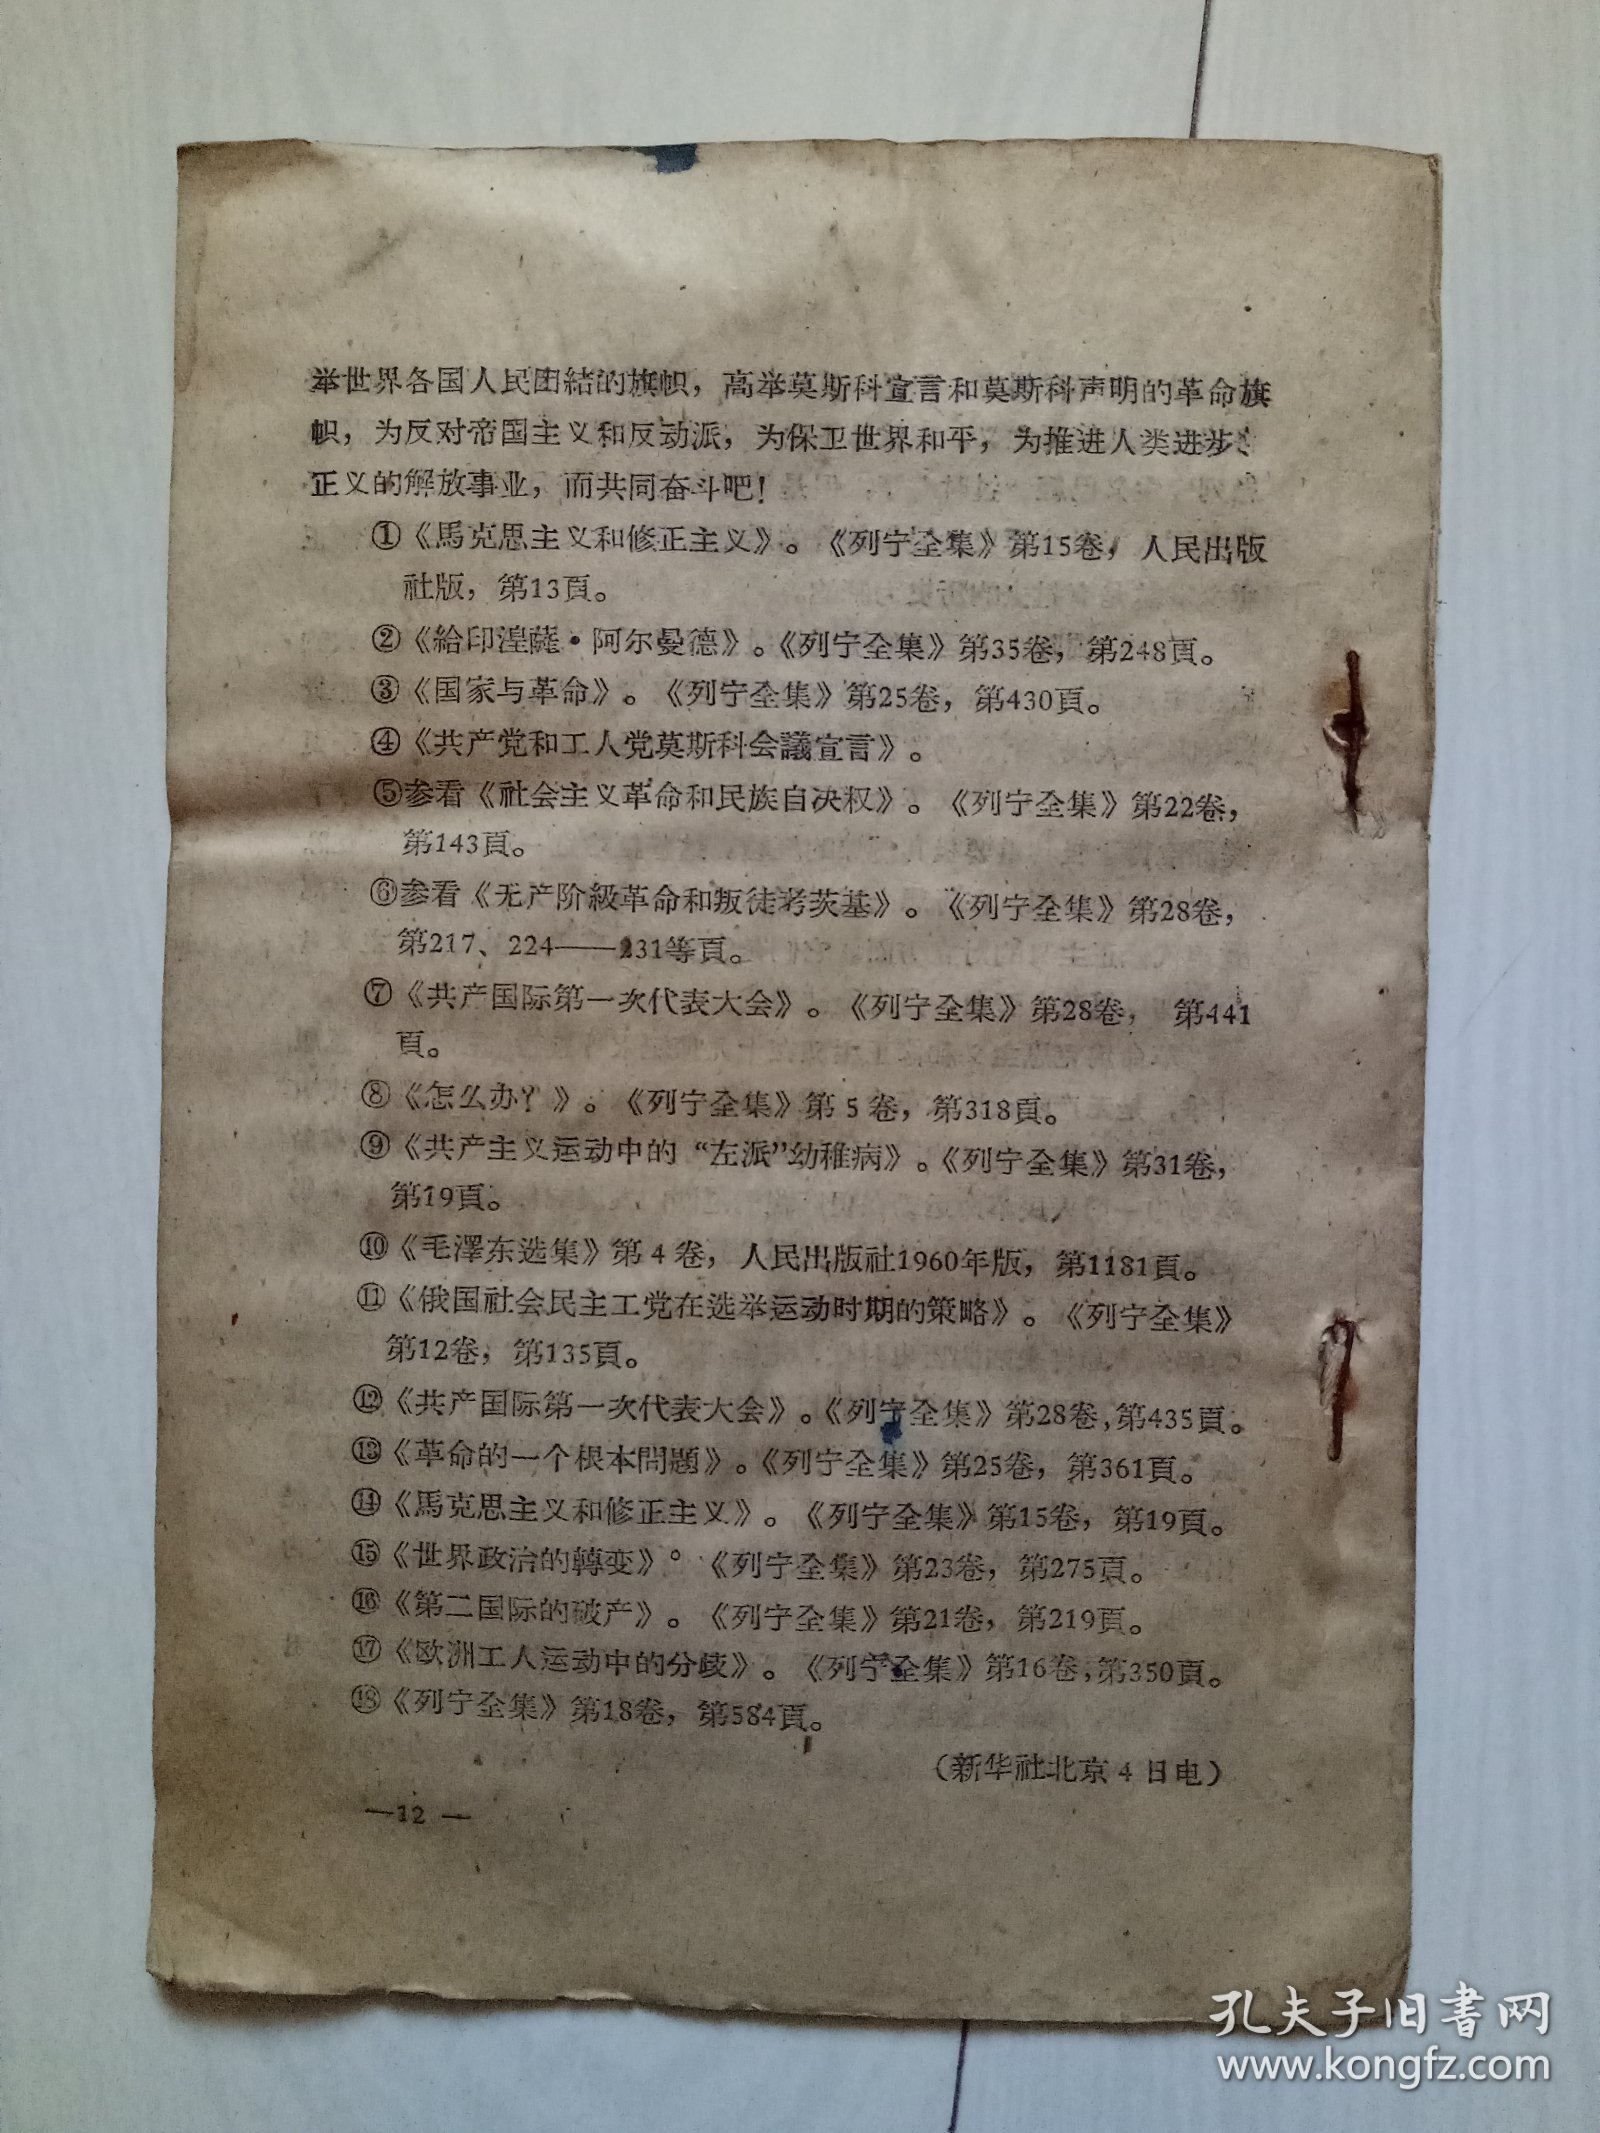 举世界各国人民团結的旗帜，高举莫斯科宣言和莫斯科声明的革命旗
帜，为反对帝国主义和反动派，为保卫世界和平，为推进人类进步、
正义的解放事业，而共同奋斗吧！
①《馬克思主义和修正主义》。《列宁全集》第15卷，人民出版
社版，第13頁。
②《給印涅薩·阿尔曼德》。《列宁全集》第35卷，第248頁。
③《国家与革命》。《列宁全集》第25卷，第430頁。
④《共产党和工人党莫斯科会議宣言》。
⑤参看《社会主义革命和民族自决权》。《列宁全集》第22卷，
第143頁。
⑥参看《无产阶級革命和叛徒考茨基》。《列宁全集》第28卷，
第217、224——231等頁。
⑦《共产国际第一次代表大会》。《列宁全集》第28卷，第441
頁。
⑧《怎么办？》。《列宁全集》第5卷，第318頁。
⑨《共产主义运动中的“左派”幼稚病》。《列宁全集》第31卷，
第19頁。
⑩《毛澤东选集》第4卷，人民出版社1960年版，第1181頁。
⑪《俄国社会民主工党在选举运动时期的策略》。《列宁全集》
第12卷，第135頁。
⑫《共产国际第一次代表大会》。《列宁全集》第28卷，第435頁。
⑬《革命的一个根本問題》。《列宁全集》第25卷，第361頁。
⑭《馬克思主义和修正主义》。《列宁全集》第15卷，第19頁。
⑮《世界政治的轉变》。《列宁全集》第23卷，第275頁。
⑯《第二国际的破产》。《列宁全集》第21卷，第219頁。
⑰《欧洲工人运动中的分歧》。《列宁全集》第16卷，第350頁。
⑱《列宁全集》第18卷，第584頁。
（新华社北京4日电）
—12—
孔夫子旧書网
www.kongfz.com